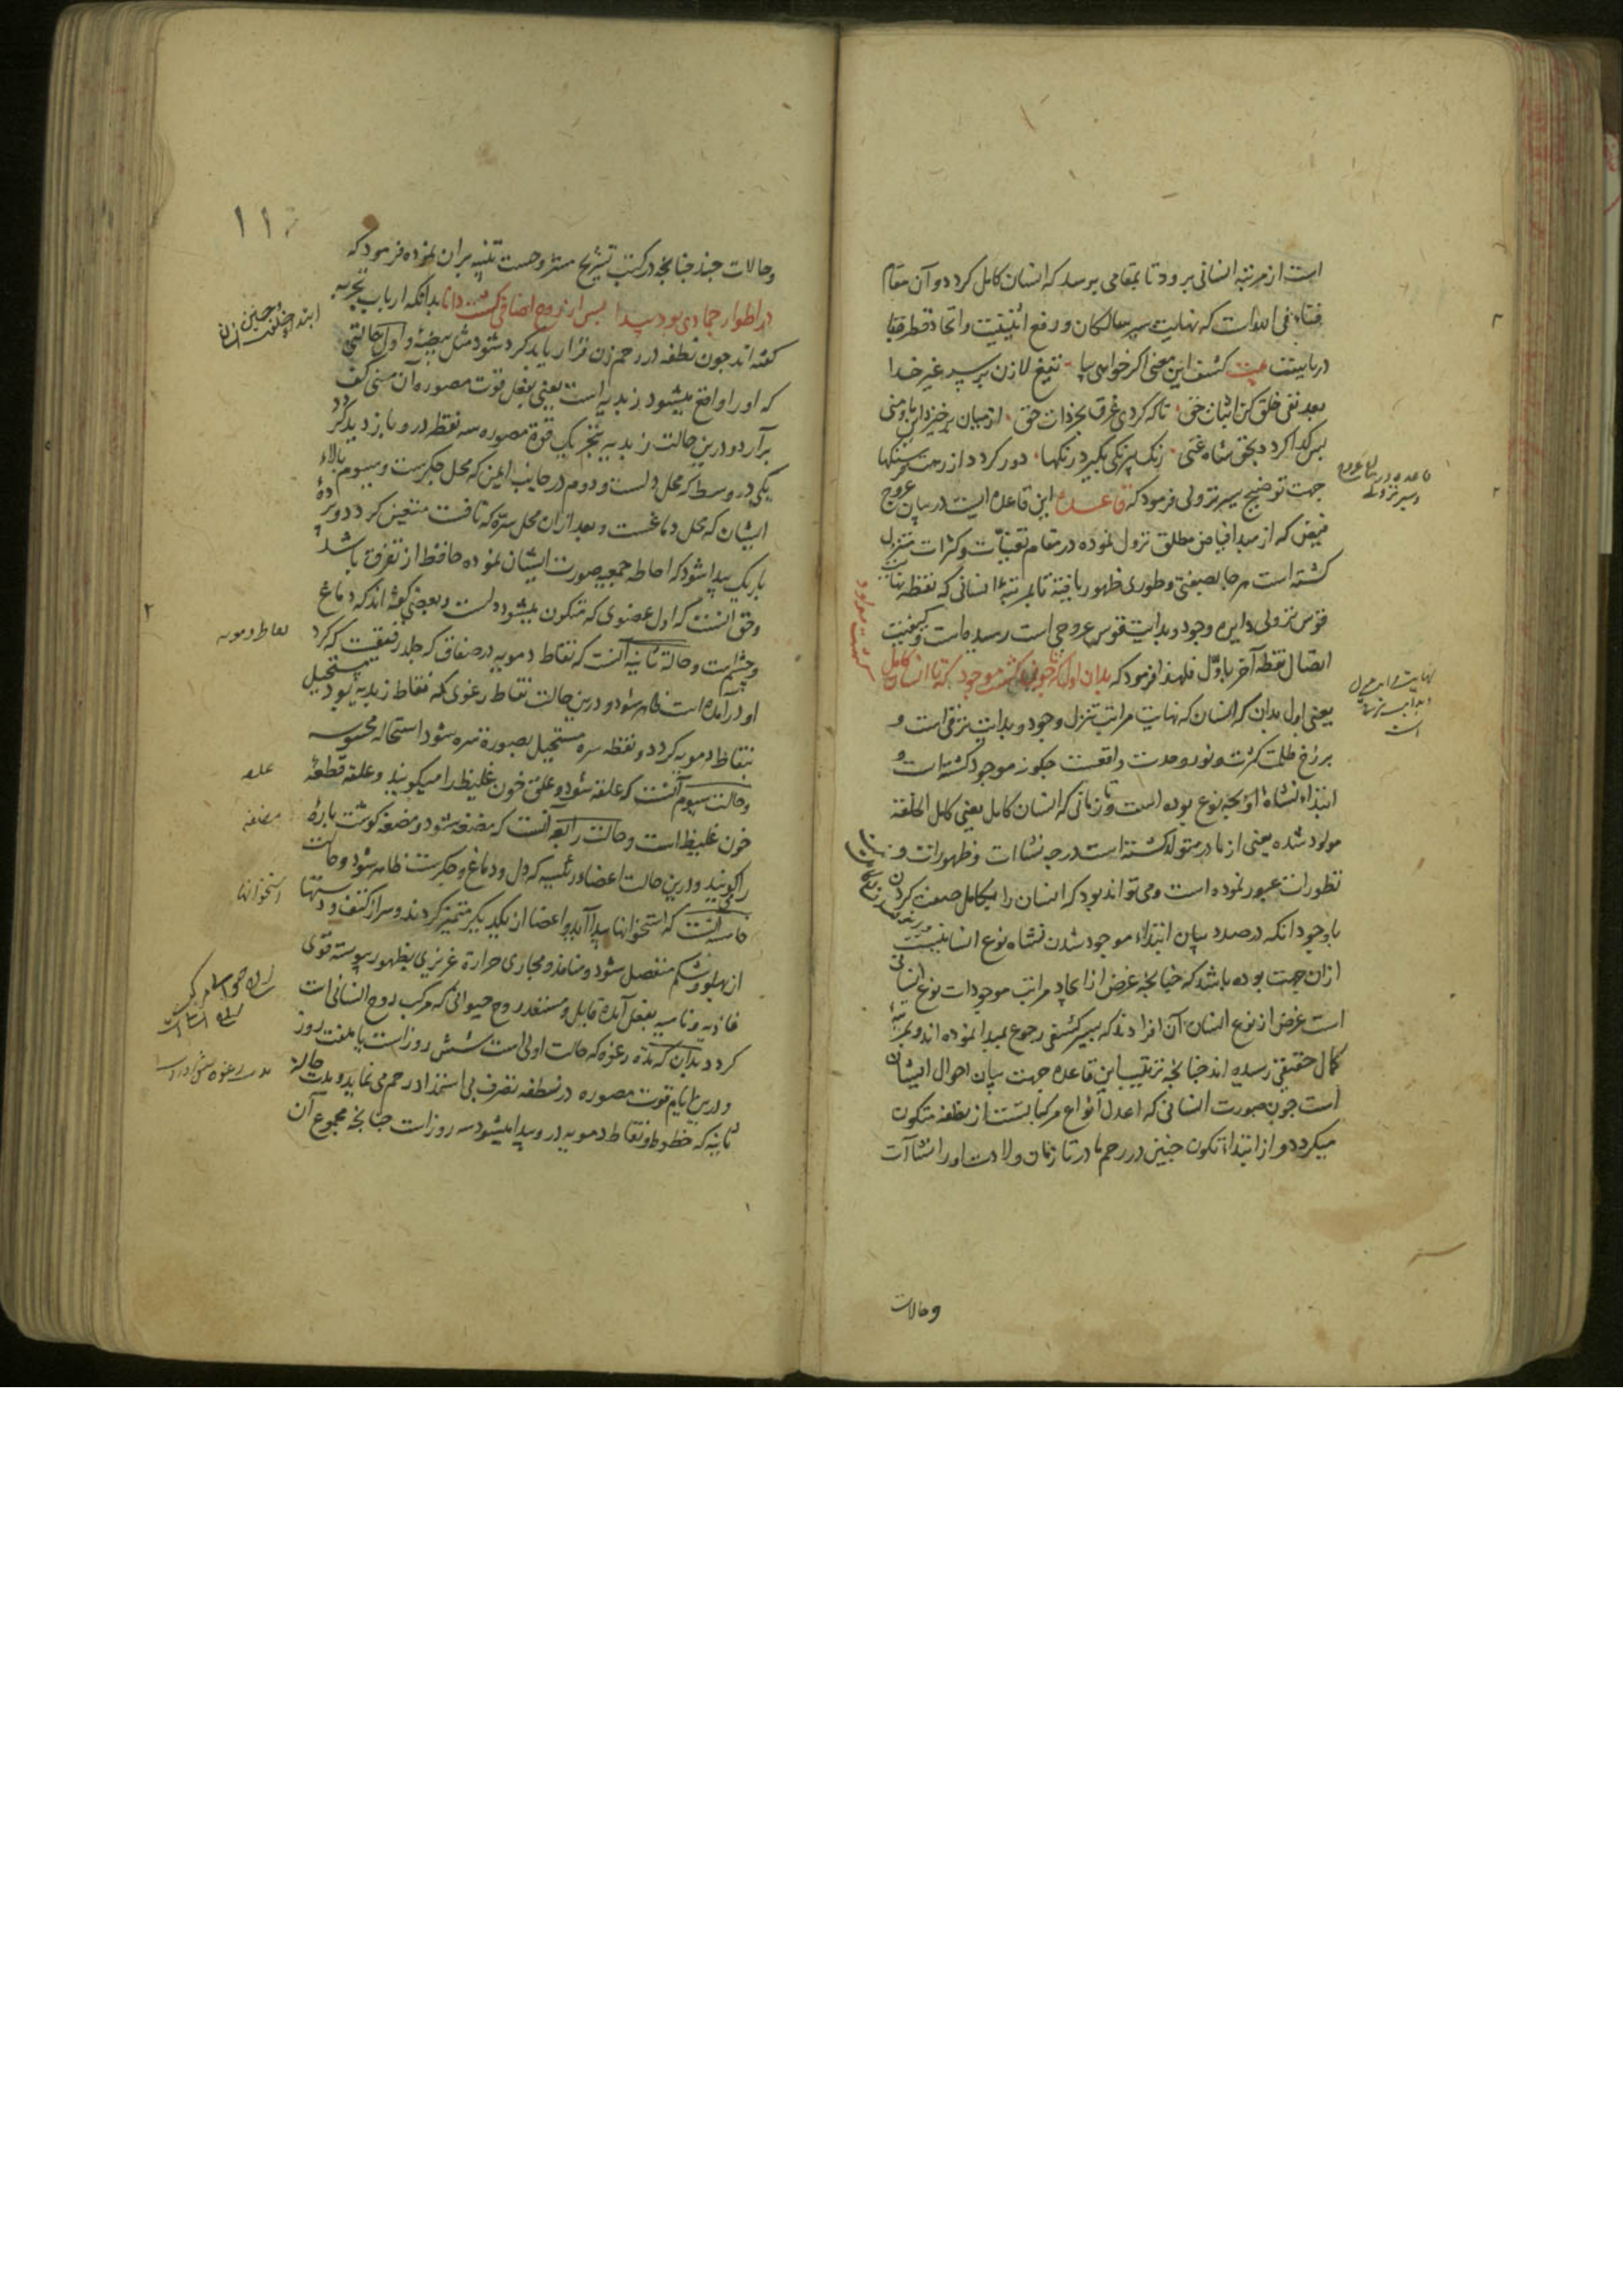 است از مرتبه انسانی برود تا بمقامی برسد که انسان کامل کردد و آن مقام
فناء فی الله است که نهایت سیر سالکان و رفع اثنینیت و اتحاد قطره با
دریاست بیت کشف این معنی اکر خواهی بیا تیغ لا زن بر سر غیر خدا
بعد نفی خلق کن اثبات حق تا که کردی غرق بحر ذات حق از میان برخیزد این ما و منی
پس کدا کردد بحق شاه غنی رنک بیرنکی بکیرد رنکها دور کردد از رهت
جهت توضیح سیر نزولی فرمود که قاعده این قاعده ایست در بیان عروج
فیض که از مبدا فیاض مطلق نزول نموده در مقام تعینات و کثرات متنزل
کشته است هر جا بصفتی و طوری ظهور یافته تا بمرتبهٔ انسانی که نقطه نهایت
قوس نزولی دایره وجود و بدایت قوس عروجی است رسیده است و کیفیت
اتصال نقطه آخر باول فلهذا فرمود که بدان اول که تا چون کشت موجود که تا انسان کامل
کشت مولود
یعنی اول بدان که انسان که نهایت مراتب تنزل وجود و بدایت ترقی است و
برزخ ظلمت کثرت و نور وحدت واقعست چکونه موجود کشته است و
ابتداء نشاهٔ او بچه نوع بوده است و تا زمانی که انسان کامل یعنی کامل الخلقه
مولود شده یعنی از مادر متولد کشته است در چه نشاات و ظهورات و
تطورات عبور نموده است و می تواند بود که انسان را بکامل صفت کردن
باوجود انکه در صدد بیان ابتداء موجود شدن نشاه نوع انسانیست
ازان جهت بوده باشد که چنانچه غرض از ایجاد مراتب موجودات نوع انسانی
است غرض از نوع انسان آن افرادند که بسیر کشفی رجوع بمبدا نموده اند و بمرتبهٔ
کمال حقیقی رسیده اند چنانچه ترتیب این قاعده جهت بیان احوال ایشان
است چون صورت انسانی که اعدل انواع مرکباتست از نطفه متکون
میکردد و از ابتداء تکون جنین در رحم مادر تا زمان ولادت او را نشاآت
وحالات
وحالات چند چنانچه در کتب تشریح مشروحست تنبیه بران نموده فرمود که
در اطوار جمادی بود پیدا پس از روح اضافی کشت دانا بدانکه ارباب تجربه
کفته اند چون نطفه در رحم زن قرار یابد کرد شود مثل بیضه و اول حالتی
که او را واقع میشود زبدیه است یعنی بفعل قوت مصوره آن منی کف
برآرد و درین حالت زبدیه بتحریک قوة مصوره سه نقطه درو بازدید کردد
یکی در وسط که محل دلست و دوم در جانب ایمن که محل جکرست و سیوم بالاء
ایشان که محل دماغست و بعد ازان محل سره که نافست متعین کردد و پردهٔ
باریک پیدا شود که احاطه جمیع صورت ایشان نموده حافظ از تفرق باشد
وحق آنست که اول عضوی که متکون میشود دلست و بعضی کفته اند که دماغ
و چشم است و حالة ثانیه آنست که نقاط دمویه در صفاق که جلد رقیقست که کرد
او درآمده است ظاهر شود و درین حالت نقاط رغوی که نقاط زبدیه بود مستحیل
بنقاط دمویه کردد و نقطه سره مستحیل بصورة سره شود استحاله محسوسه
و حالت سیوم آنست که علقه شود و علق خون غلیظ را میکویند و علقه قطعهٔ
خون غلیظ است و حالت رابعه آنست که مضغه شود و مضغه کوشت پارهٔ
را کویند و درین حالت اعضاء رئیسه که دل و دماغ و جکرست ظاهر شود و حالت
خامسه آنست که استخوانها پیدا آید و اعضا از یکدیکر متمیز کردند و سر از کتف و دستها
از پهلو و شکم منفصل شود و منافذ و مجاری حرارة غریزی بظهور پیوسته قوی
غاذیه و نامیه بفعل آمده قابل و مستعد روح حیوانی که مرکب روح انسانی است
کردد بدان که مدة رغوه که حالت اولی است شش روز است یا هفت روز
و درین ایام قوت مصوره در نطفه تصرف بی استمداد رحم می نماید و مدت حالة
ثانیه که خطوط و نقاط دمویه درو پیدا میشود سه روز است چنانچه مجموع آن
ابتداء خلقت جنین انسان
نقاط دمویه
علقه
مضغه
استخوانها